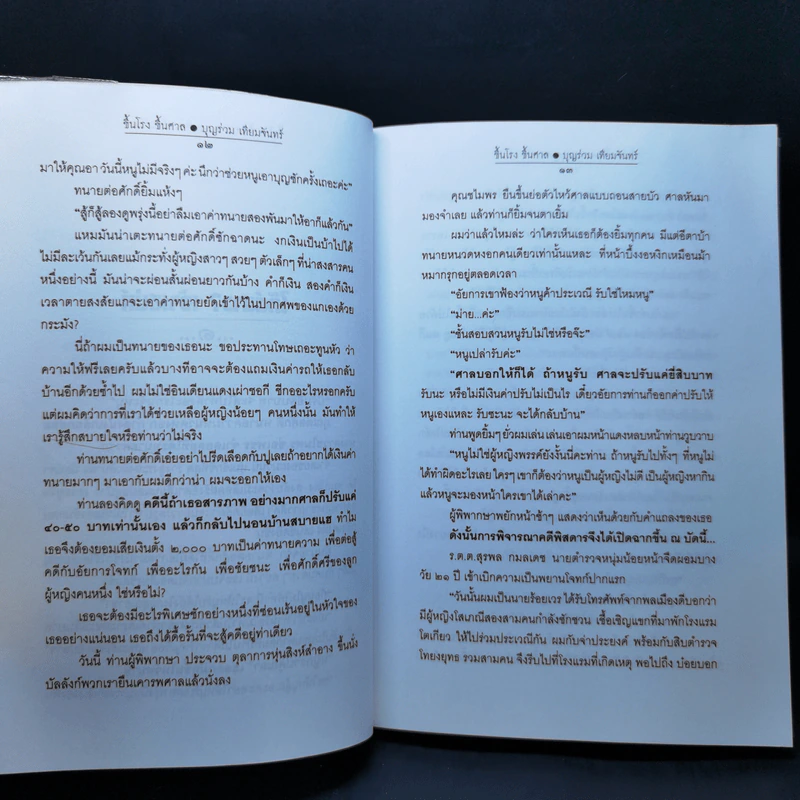 ขึ้นโรง ขึ้นศาล ● บุญร่วม เทียมจันทร์
๑๒
มาให้คุณอา วันนี้หนูไม่มีจริงๆ ค่ะ นึกว่าช่วยหนูเอาบุญซักครั้งเถอะค่ะ"
ทนายต่อศักดิ์ยิ้มแห้งๆ
"สู้ก็สู้ลองดูพรุ่งนี้อย่าลืมเอาค่าทนายสองพันมาให้อาก็แล้วกัน"
แหมมันน่าเตะทนายต่อศักดิ์ซักฉาดนะ งกเงินเป็นบ้าไปได้
ไม่มีละเว้นกันเลยแม้กระทั่งผู้หญิงสาวๆ สวยๆ ตัวเล็กๆ ที่น่าสงสารคน
หนึ่งอย่างนี้ มันน่าจะผ่อนสั้นผ่อนยาวกันบ้าง คำก็เงิน สองคำก็เงิน
เวลาตายสงสัยแกจะเอาค่าทนายยัดเข้าไว้ในปากศพของแกเองด้วย
กระมัง?
นี่ถ้าผมเป็นทนายของเธอนะ ขอประทานโทษเถอะทูนหัว ว่า
ความให้ฟรีเลยครับแล้วบางทีอาจจะต้องแถมเงินค่ารถให้เธอกลับ
บ้านอีกด้วยซ้ำไป ผมไม่ใช่อินเดียนแดงเผ่าชอกี ชีกออะไรหรอกครับ
แต่ผมคิดว่าการที่เราได้ช่วยเหลือผู้หญิงน้อยๆ คนหนึ่งนั้น มันทำให้
เรารู้สึกสบายใจหรือท่านว่าไม่จริง
ท่านทนายต่อศักดิ์เอ๋ยอย่าไปรีดเลือดกับปูเลยถ้าอยากได้เงินค่า
ทนายมากๆ มาเอากับผมดีกว่าน่า ผมจะออกให้เอง
ท่านลองคิดดู คดีนี้ถ้าเธอสารภาพ อย่างมากศาลก็ปรับแค่
๔๐-๕๐ บาทเท่านั้นเอง แล้วก็กลับไปนอนบ้านสบายแฮ ทำไม
เธอจึงต้องยอมเสียเงินตั้ง ๒,๐๐๐ บาทเป็นค่าทนายความ เพื่อต่อสู้
คดีกับอัยการโจทก์ เพื่ออะไรกัน เพื่อชัยชนะ เพื่อศักดิ์ศรีของลูก
ผู้หญิงคนหนึ่ง ใช่หรือไม่?
เธอจะต้องมีอะไรพิเศษซักอย่างหนึ่งที่ซ่อนเร้นอยู่ในหัวใจของ
เธออย่างแน่นอน เธอถึงได้ดื้อรั้นที่จะสู้คดีอยู่ท่าเดียว
วันนี้ ท่านผู้พิพากษา ประจวบ ตุลาการหุ่นสิงห์สำอาง ขึ้นนั่ง
บัลลังก์พวกเรายืนเคารพศาลแล้วนั่งลง
ขึ้นโรง ขึ้นศาล ● บุญร่วม เทียมจันทร์
๑๓
คุณชไมพร ยืนขึ้นย่อตัวไหว้ศาลแบบถอนสายบัว ศาลหันมา
มองจำเลย แล้วท่านก็ยิ้มจนตาเยิ้ม
ผมว่าแล้วไหมล่ะ ว่าใครเห็นเธอก็ต้องยิ้มทุกคน มีแต่อีตาบ้า
ทนายหนวดหงอกคนเดียวเท่านั้นแหละ ที่หน้าบึ้งงอหงิกเหมือนม้า
หมากรุกอยู่ตลอดเวลา
"อัยการเขาฟ้องว่าหนูค้าประเวณี รับใช่ไหมหนู"
"ม่าย...ค่ะ"
"ชั้นสอบสวนหนูรับไม่ใช่หรือจ๊ะ"
"หนูเปล่ารับค่ะ"
"ศาลบอกให้ก็ได้ ถ้าหนูรับ ศาลจะปรับแค่ยี่สิบบาท
รับนะ หรือไม่มีเงินค่าปรับไม่เป็นไร เดี๋ยวอัยการท่านก็ออกค่าปรับให้
หนูเองแหละ รับซะนะ จะได้กลับบ้าน"
ท่านพูดยิ้มๆ ยั่วผมเล่น เล่นเอาผมหน้าแดงหลบหน้าท่านวูบวาบ
"หนูไม่ใช่ผู้หญิงพรรค์ยังงั้นนี่คะท่าน ถ้าหนูรับไปทั้งๆ ที่หนูไม่
ได้ทำผิดอะไรเลย ใครๆ เขาก็ต้องว่าหนูเป็นผู้หญิงไม่ดี เป็นผู้หญิงหากิน
แล้วหนูจะมองหน้าใครเขาได้เล่าคะ"
ผู้พิพากษาพยักหน้าช้าๆ แสดงว่าเห็นด้วยกับคำแถลงของเธอ
ดังนั้นการพิจารณาคดีพิสดารจึงได้เปิดฉากขึ้น ณ บัดนี้...
ร.ต.ต.สุรพล กมลเดช นายตำรวจหนุ่มน้อยหน้าจืดผอมบาง
วัย ๒๑ ปี เข้าเบิกความเป็นพยานโจทก์ปากแรก
"วันนั้นผมเป็นนายร้อยเวร ได้รับโทรศัพท์จากพลเมืองดีบอกว่า
มีผู้หญิงโสเภณีสองสามคนกำลังชักชวน เชื้อเชิญแขกที่มาพักโรงแรม
โตเกียว ให้ไปร่วมประเวณีกัน ผมกับจ่าประยงค์ พร้อมกับสิบตำรวจ
โทยงยุทธ รวมสามคน จึงรีบไปที่โรงแรมที่เกิดเหตุ พอไปถึง บ๋อยบอก